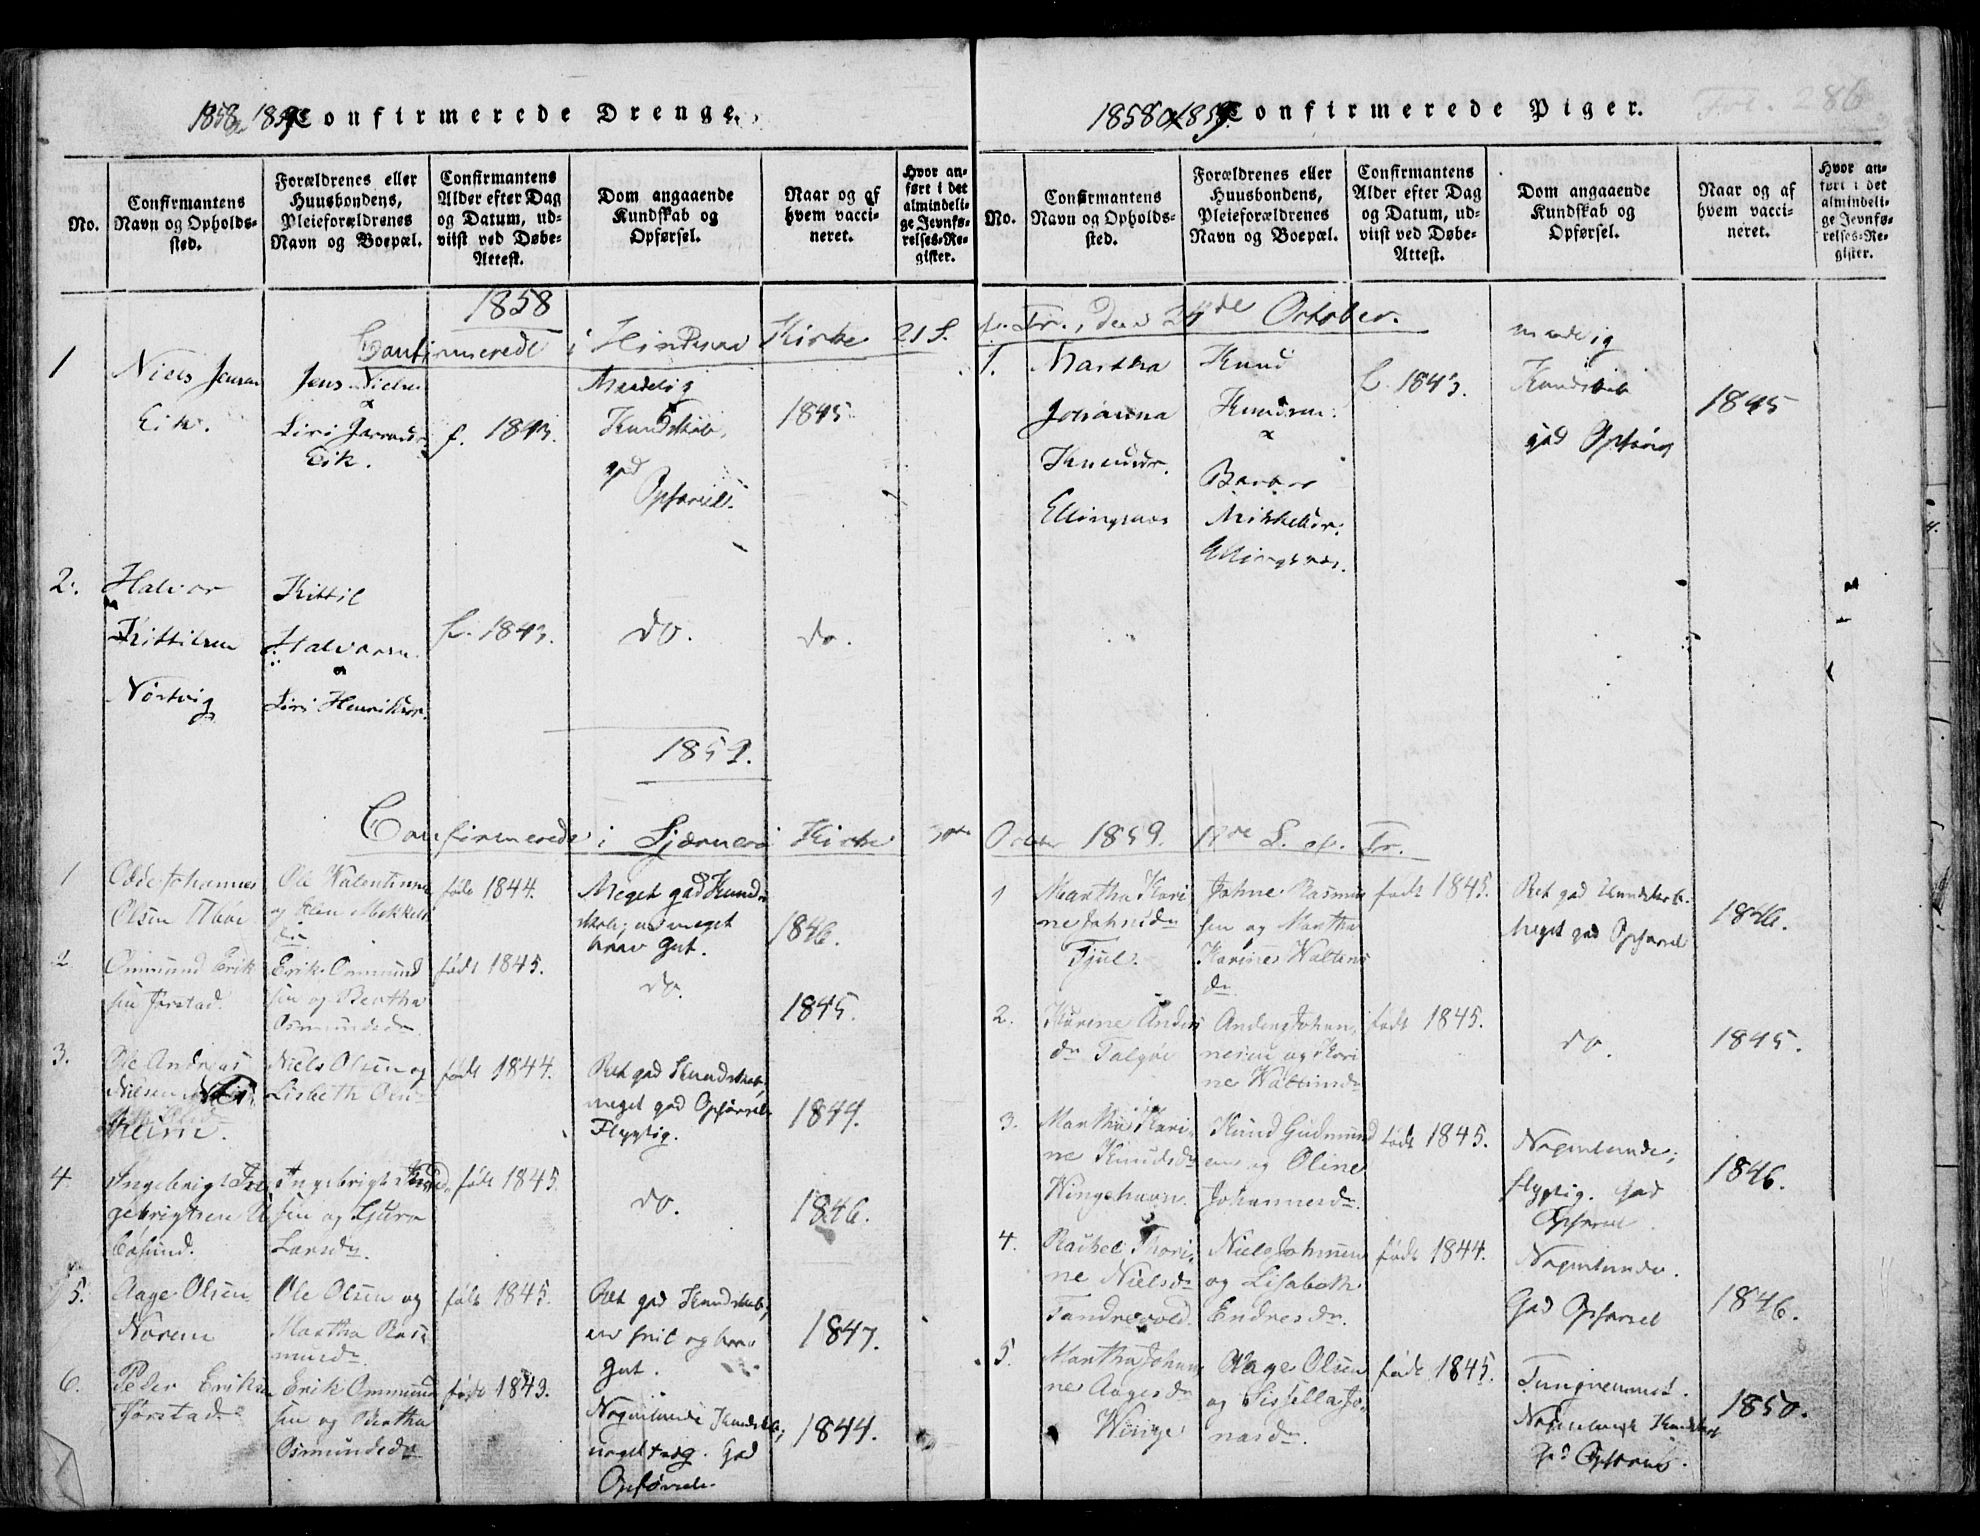 1858 & 1859 Confirmerede Drenge.
No.
Confirmantens
Navn og Opholds-
sted.
Forældrenes eller
Huusbondens,
Pleieforældrenes
Navn og Boepæl.
Confirmantens
Alder efter Dag
og Datum, ud-
viist ved Døbe-
Attest.
Dom angaaende
Kundskab og
Opførsel.
Naar og af
hvem vacci-
neret.
Hvor an-
ført i det
almindeli-
ge Jevnfø-
relses-Re-
gister.
1858
Confirmerede i Hindsvae Kirke 21 S.
1
Niels Jensen
Eik.
Jens Nielsen
x
Siri
Eik.
f. 1843.
Maadelig
Kundskab,
god
Opførsel.
1845
2.
Halvor
Kittilsen
Nørtvig
Kittil
Halvorsen
Siri Henriksdr.
f. 1843.
do.
do.
1859.
Confirmerede i Sjærnerø Kirke
1
Odde Johannes
Olsen Tthøe
Ole Valentinsen
og Elen Mikkels
dr
født 1844.
Meget god Kund-
skab; og meget
brav Gut.
1846.
2
Ommund Erik
sen Jørstad.
Erik Ommund
sen og Bertha
Osmundsdr
født 1845.
do.
1845.
3.
Ole Andreas
Nilsen
Niels Olsen og
Lisbeth Olsdr
født 1844.
Ret god Kundskab,
meget god Opførsel.
Flygtig.
1844.
4
Ingebrigt In
gebrigtsen
Ingebrigt Knud
sen og Sjura
Larsdr.
født 1845.
do.
1846.
5.
Aage Olsen
Norem
Ole Olsen og
Martha Ras
musdr.
født 1845.
Ret god Kundskab;
en snil og brav
Gut.
1847.
6.
Peder Eriksen
Jørstad.
Erik Ommund
sen og Bertha
Osmundsdr
født 1843.
Nogenlunde Kundskab;
noget . God
Opførsel.
1844.
1858 og 1859. Confirmerede Piger. Fol. 286
No.
Confirmantens
Navn og Opholds-
sted.
Forældrenes eller
Huusbondens,
Pleieforældrenes
Navn og Boepæl.
Confirmantens
Alder efter Dag
og Datum, ud-
viist ved Døbe-
Attest.
Dom angaaende
Kundskab og
Opførsel.
Naar og af
hvem vacci-
neret.
Hvor an-
ført i det
almindeli-
ge Jevnfø-
relses-Re-
gister.
Tr., den 24de October.
1.
Martha
Johanna
Knudsdr.
Ellingsnes
Knud
Knudsen.
x
Barbro
Mikkelsdr.
Ellingsnes.
f. 1843.
maadelig
Kundskab
god Opførsel
1845
October 1859. 15de S. ef. Tr.
1
Martha Kari
ne Johnsdr
Tjul.
Johne Rasmus
sen og Martha
Karines Waltens
dr
født 1845.
Ret god Kundskab.
Meget god Opførsel
1846.
2.
Karine Anders
dr Talgøe
Anders Johan
nesen og Kari
ne Waltinsdr
født 1845.
do.
1845.
3.
Martha Kari
ne Knudsdr
Wingshavn.
Knud Gudmund
sen og Oline
Johannesdr.
født 1845.
Nogenlunde;
flygtig. God
Opførsel.
1846.
4.
Rachel Thori
ne Nielsdr
Tandrevold.
Niels Johnsen
og Lisabeth
Endresdr.
født 1844.
Nogenlunde.
God Opførsel
1846.
5.
Martha Johan
ne Aagesdr
Winge
Aage Olsen
og Sissella Jo
nasdr.
født 1845.
Tungnemmet.
Nogenlunde Kundskab
God Opførsel.
1850.